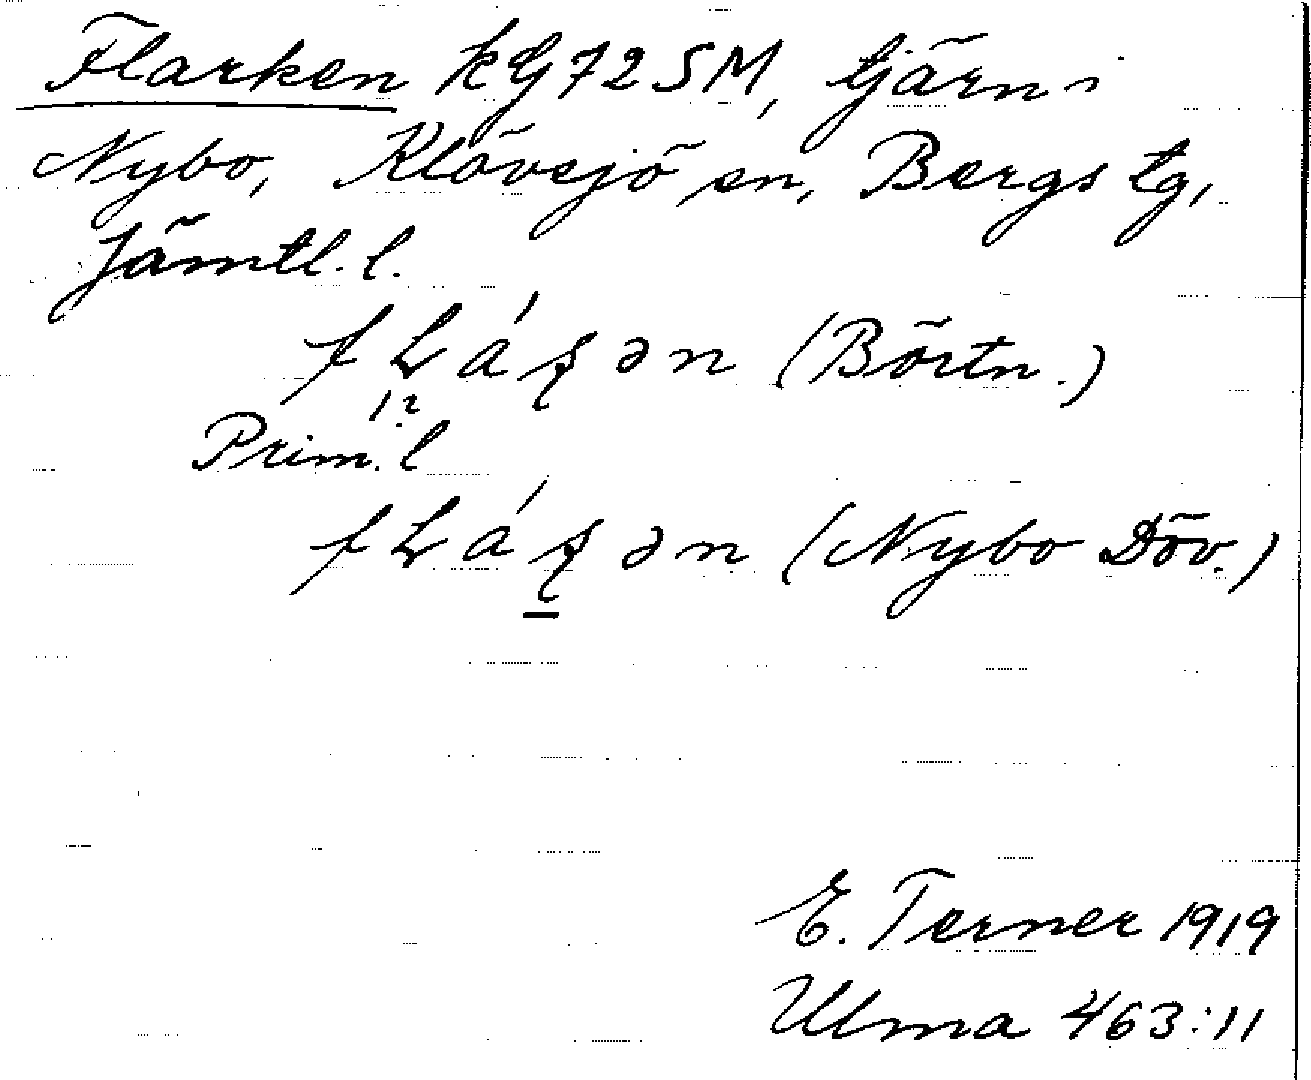 Flarken kG72SM, tjärn i
Nybo, Klövsjö sn, Bergs tg,
Jämtl. l.
(Börtn.)
Prim. l
(Nybo Döv.)
E. Terner 1919
Ulma 463:11